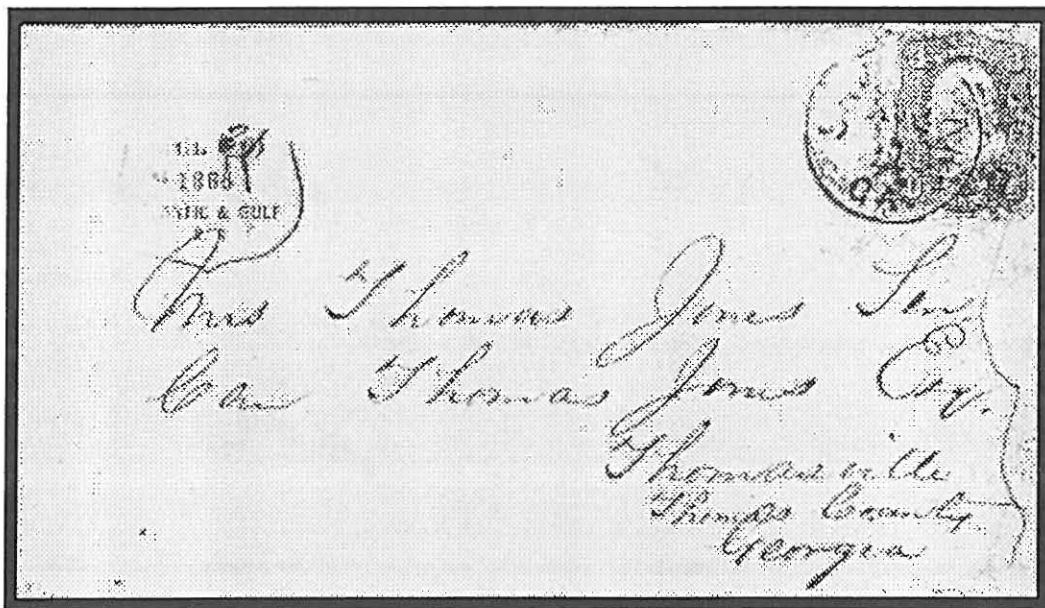 1886
& GULF
Mrs Thomas Jones Sen
Care Thomas Jones Esq.
Thomasville
Thomas County
Georgia